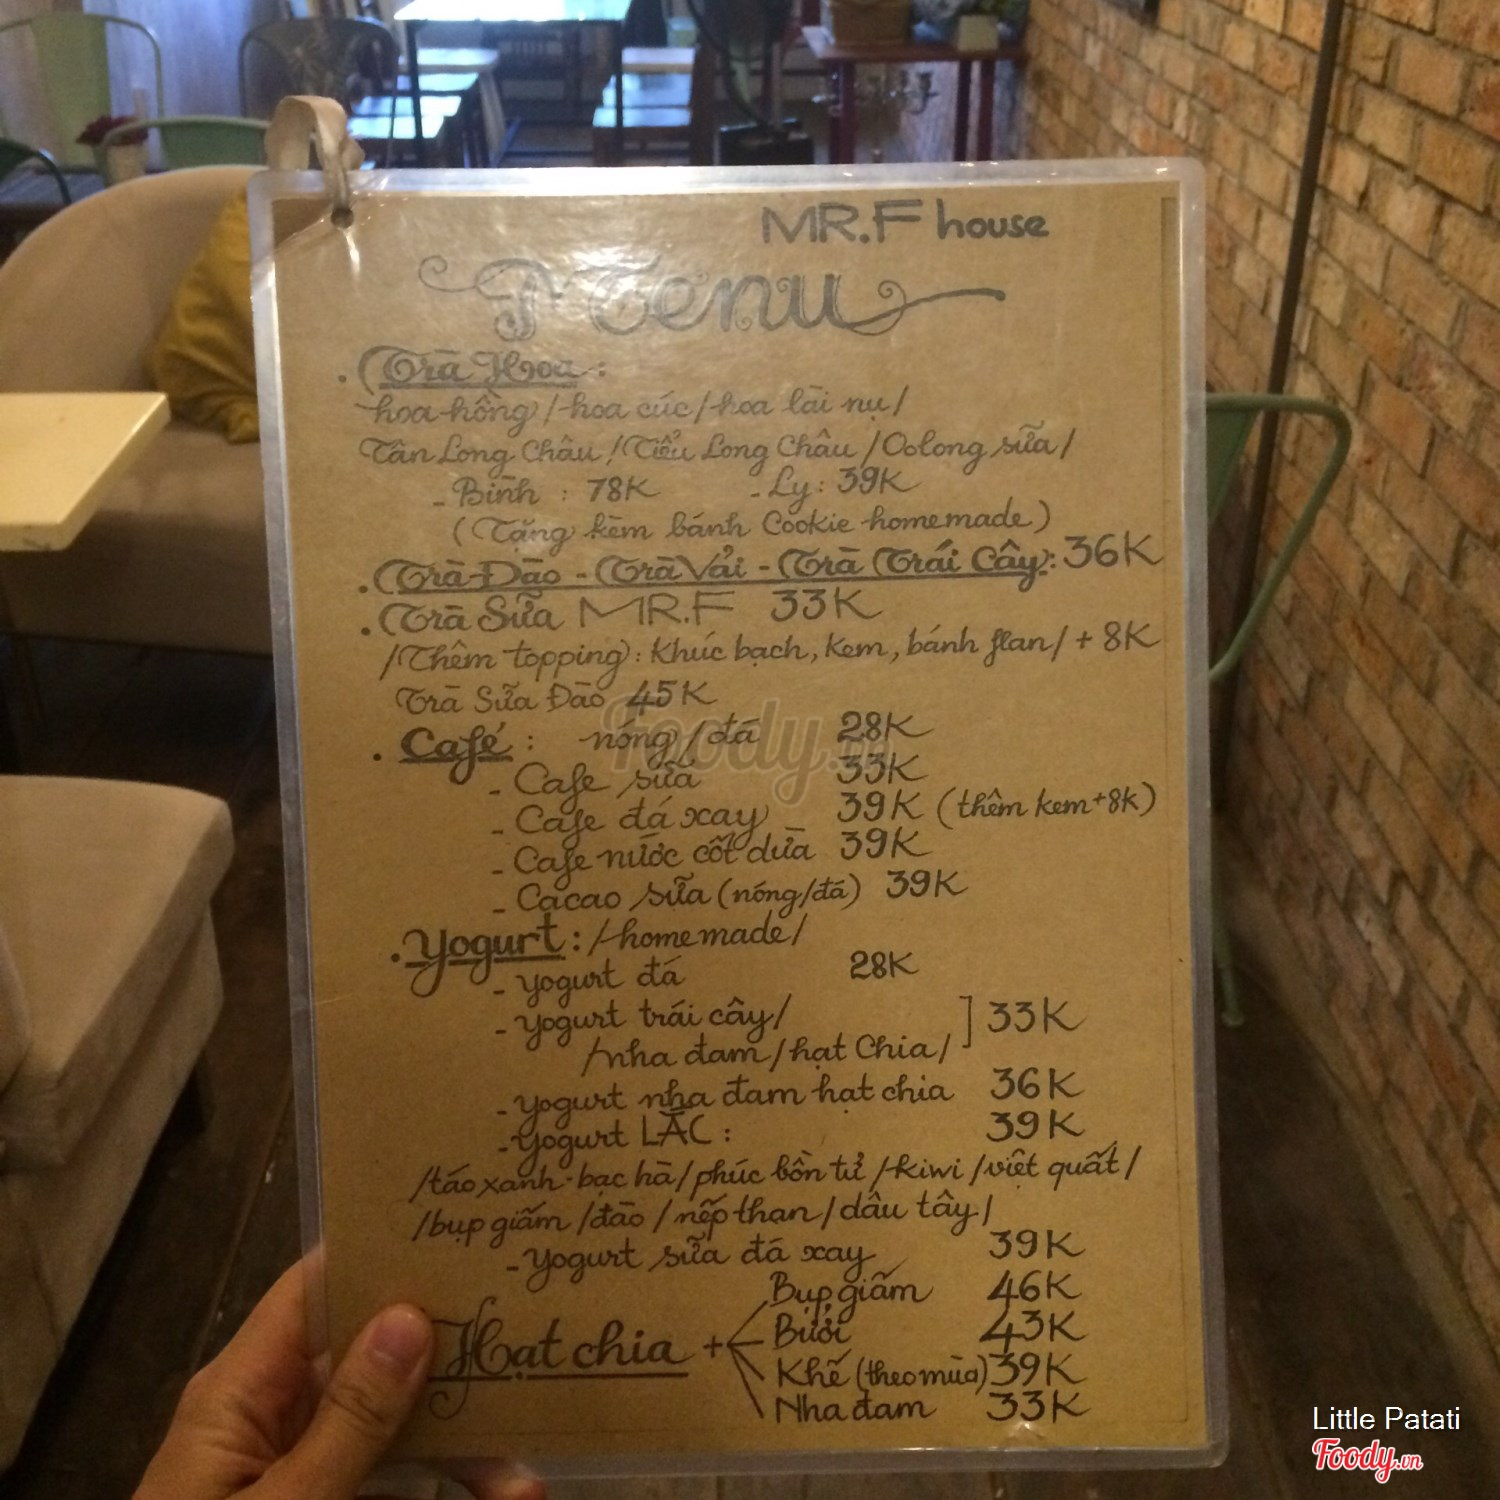 MR.F house
Menu
. Trà Hoa :
hoa hồng / hoa cúc / hoa lài nụ /
Tân Long Châu / Tiểu Long Châu / Oolong sữa /
- Bình : 78K - Ly : 39K
( Tặng kèm bánh Cookie homemade )
. Trà Đào - Trà Vải - Trà Trái Cây : 36K
. Trà Sữa MR.F 33K
/ Thêm topping : khúc bạch, kem, bánh flan / + 8K
Trà Sữa Đào 45K
. Café : nóng / đá 28K
- Cafe sữa 33K
- Cafe đá xay 39K ( thêm kem + 8K )
- Cafe nước cốt dừa 39K
- Cacao sữa ( nóng/đá ) 39K
. Yogurt : / homemade /
- yogurt đá 28K
- yogurt trái cây / ] 33K
/ nha đam / hạt Chia /
- yogurt nha đam hạt chia 36K
- yogurt LẮC : 39K
/ táo xanh - bạc hà / phúc bồn tử / kiwi / việt quất /
/ bụp giấm / đào / nếp than / dâu tây /
- yogurt sữa đá xay 39K
Hạt chia + Bụp giấm 46K
Bưởi 43K
Khế (theo mùa) 39K
Nha đam 33K
Foody.vn
Little Patati
Foody.vn